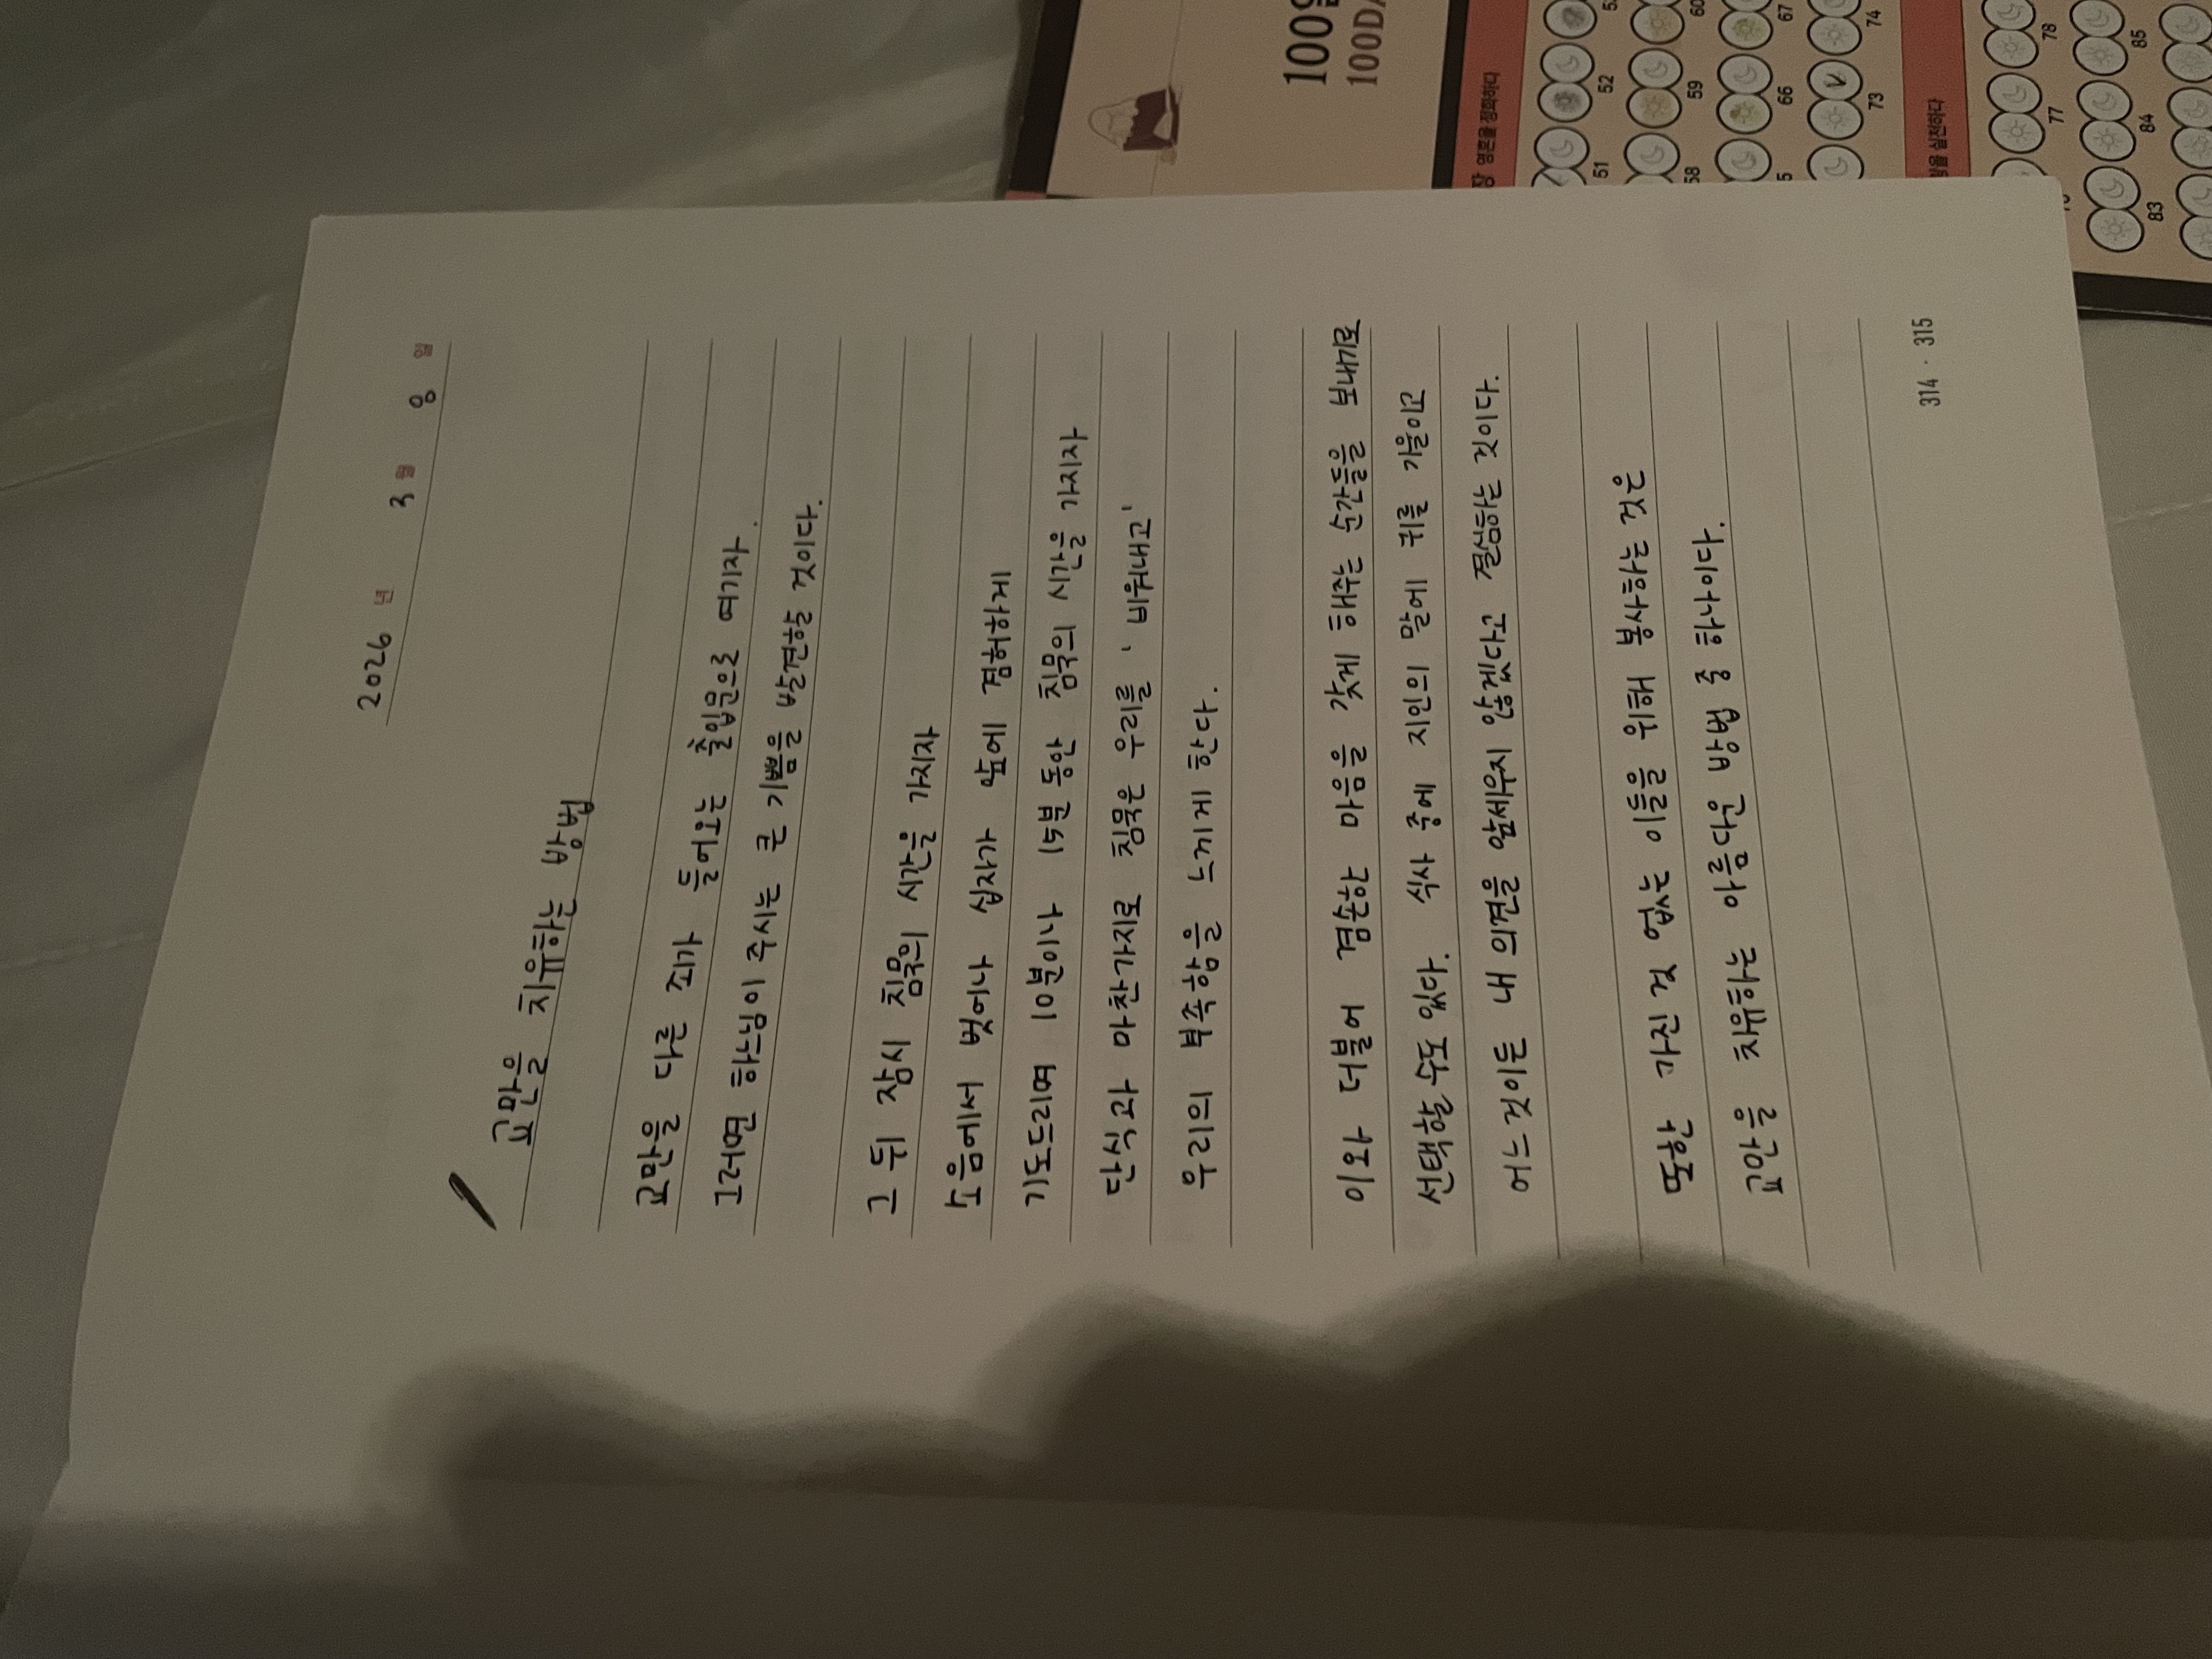 2026 년 3 월 8 일
교만을 치유하는 방법
교만을 다른 죄가 들어오는 출입문으로 여기자.
그러면 하느님이 주시는 큰 기쁨을 발견할 것이다.
그 뒤 잠시 침묵의 시간을 가지자
소음에서 벗어나 십자가 앞에 겸허하게
기도드리며 10분이나 15분 동안 침묵의 시간을 가지자
단식과 마찬가지로 침묵은 우리를 '비워내고'
우리의 부족함을 느끼게 한다.
이와 더불어 겸손한 마음을 갖게 해주는 순간들을 보내기로
선택할 수도 있다. 식사 중에 지인의 말에 귀를 기울이고
어느 것이든 내 의견을 앞세우지 않겠다고 결심하는 것이다.
또한 가진 것 없는 이들을 위해 봉사하는 것은
교만을 치유하는 아름다운 방법 중 하나이다.
314 · 315
100일
100DA
장 영혼을 정화하다
51 52
58 59 60
66 67
73 74
실천하다
77 78
83 84 85